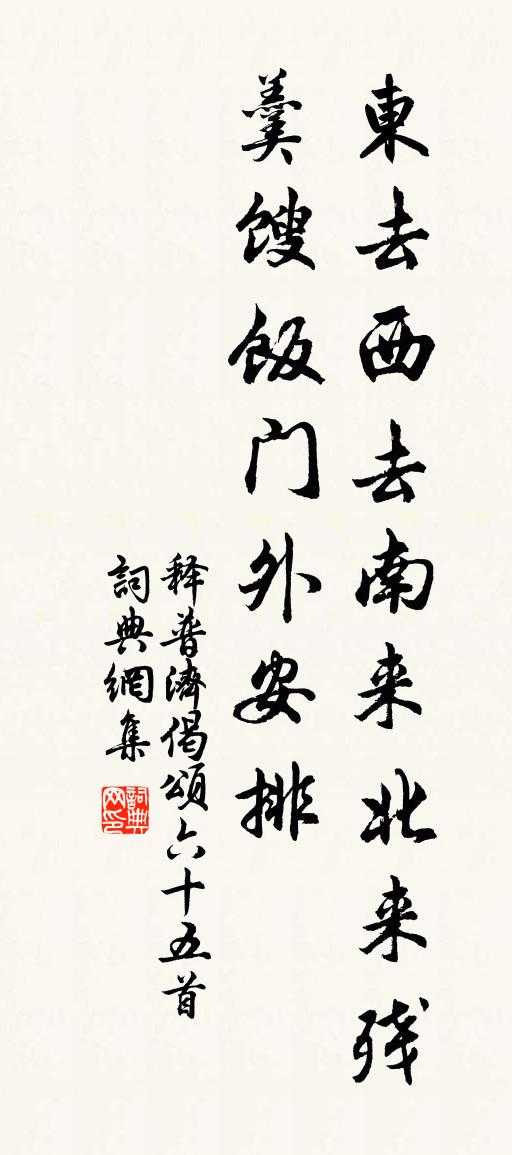 東去西去南来北来残
羹馊飯門外安排
释普濟偈頌六十五首
詞典網集
詞典网印